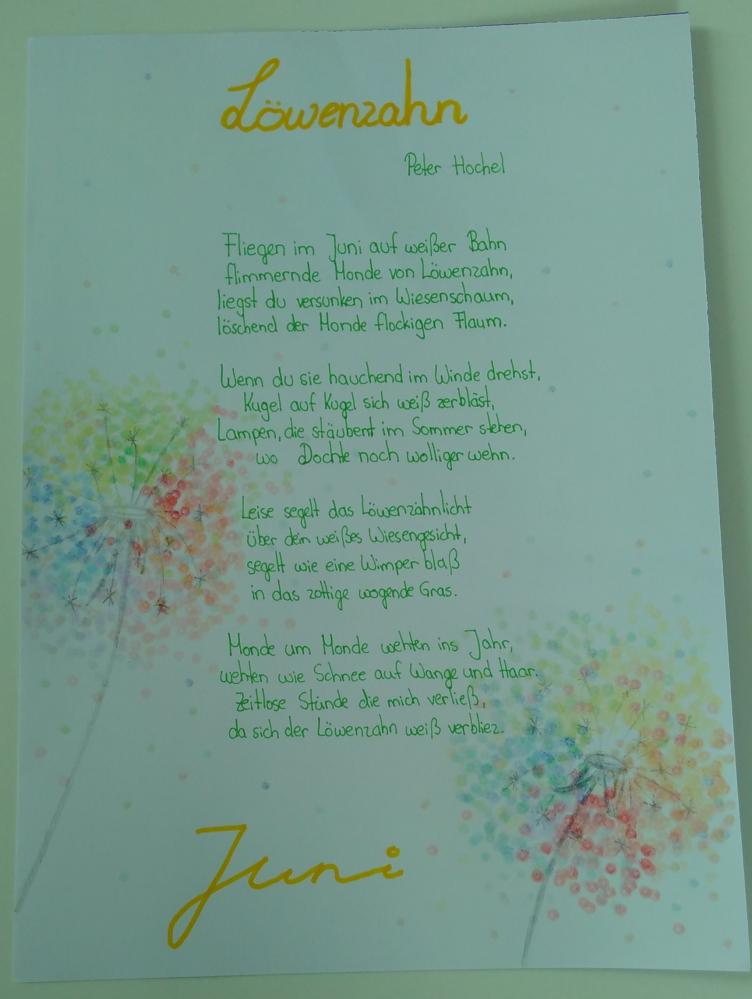 Löwenzahn
Peter Hochel
Fliegen im Juni auf weißer Bahn
flimmernde Monde von Löwenzahn,
liegst du versunken im Wiesenschaum,
löschend der Monde flockigen Flaum.
Wenn du sie hauchend im Winde drehst,
Kugel auf Kugel sich weiß zerbläst,
Lampen, die stäubent im Sommer stehen,
wo Dochte noch wolliger wehn.
Leise segelt das Löwenzähnlicht
über dein weißes Wiesengesicht,
segelt wie eine Wimper blaß
in das zottige wogende Gras.
Monde um Monde wehten ins Jahr,
wehten wie Schnee auf Wange und Haar.
Zeitlose Stunde die mich verließ,
da sich der Löwenzahn weiß verbliez.
Juni